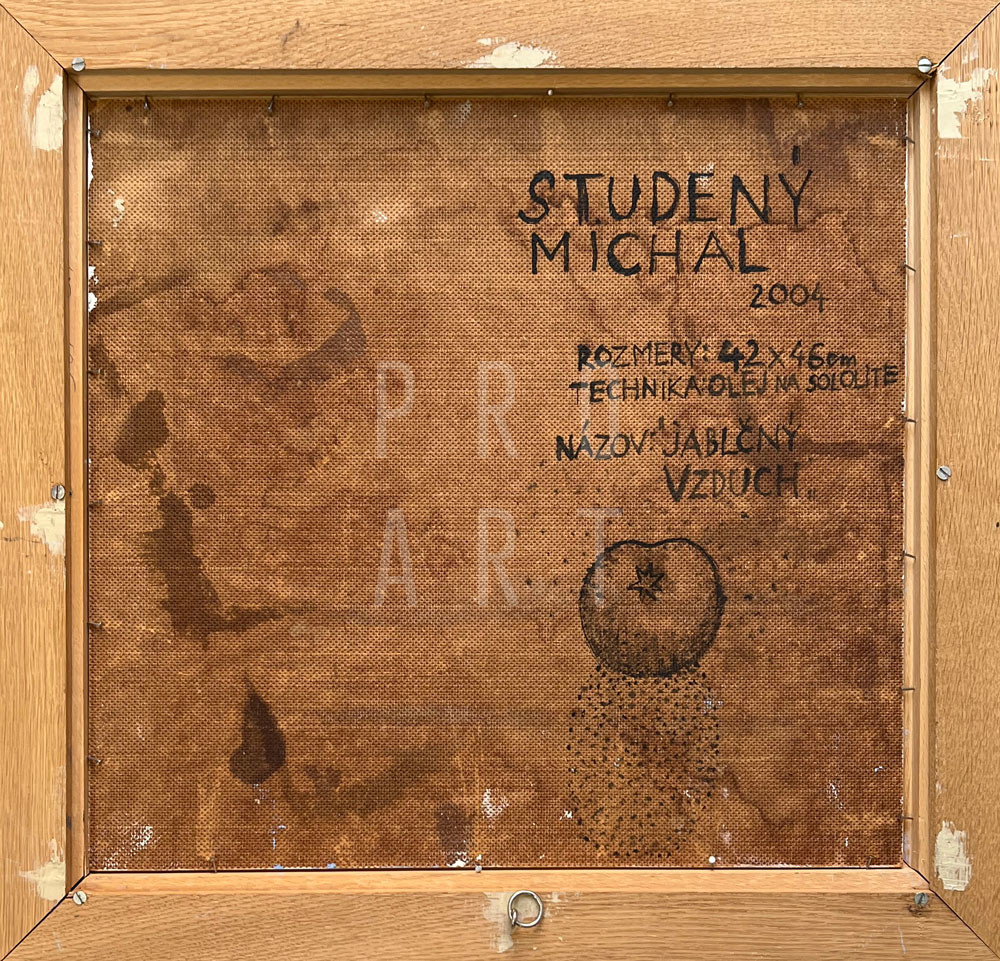 STUDENÝ
MICHAL
2004
ROZMERY: 42 x 46 cm
TECHNIKA: OLEJ NA SOLOLITE
NÁZOV: "JABLČNÝ
VZDUCH„
PRO
ART